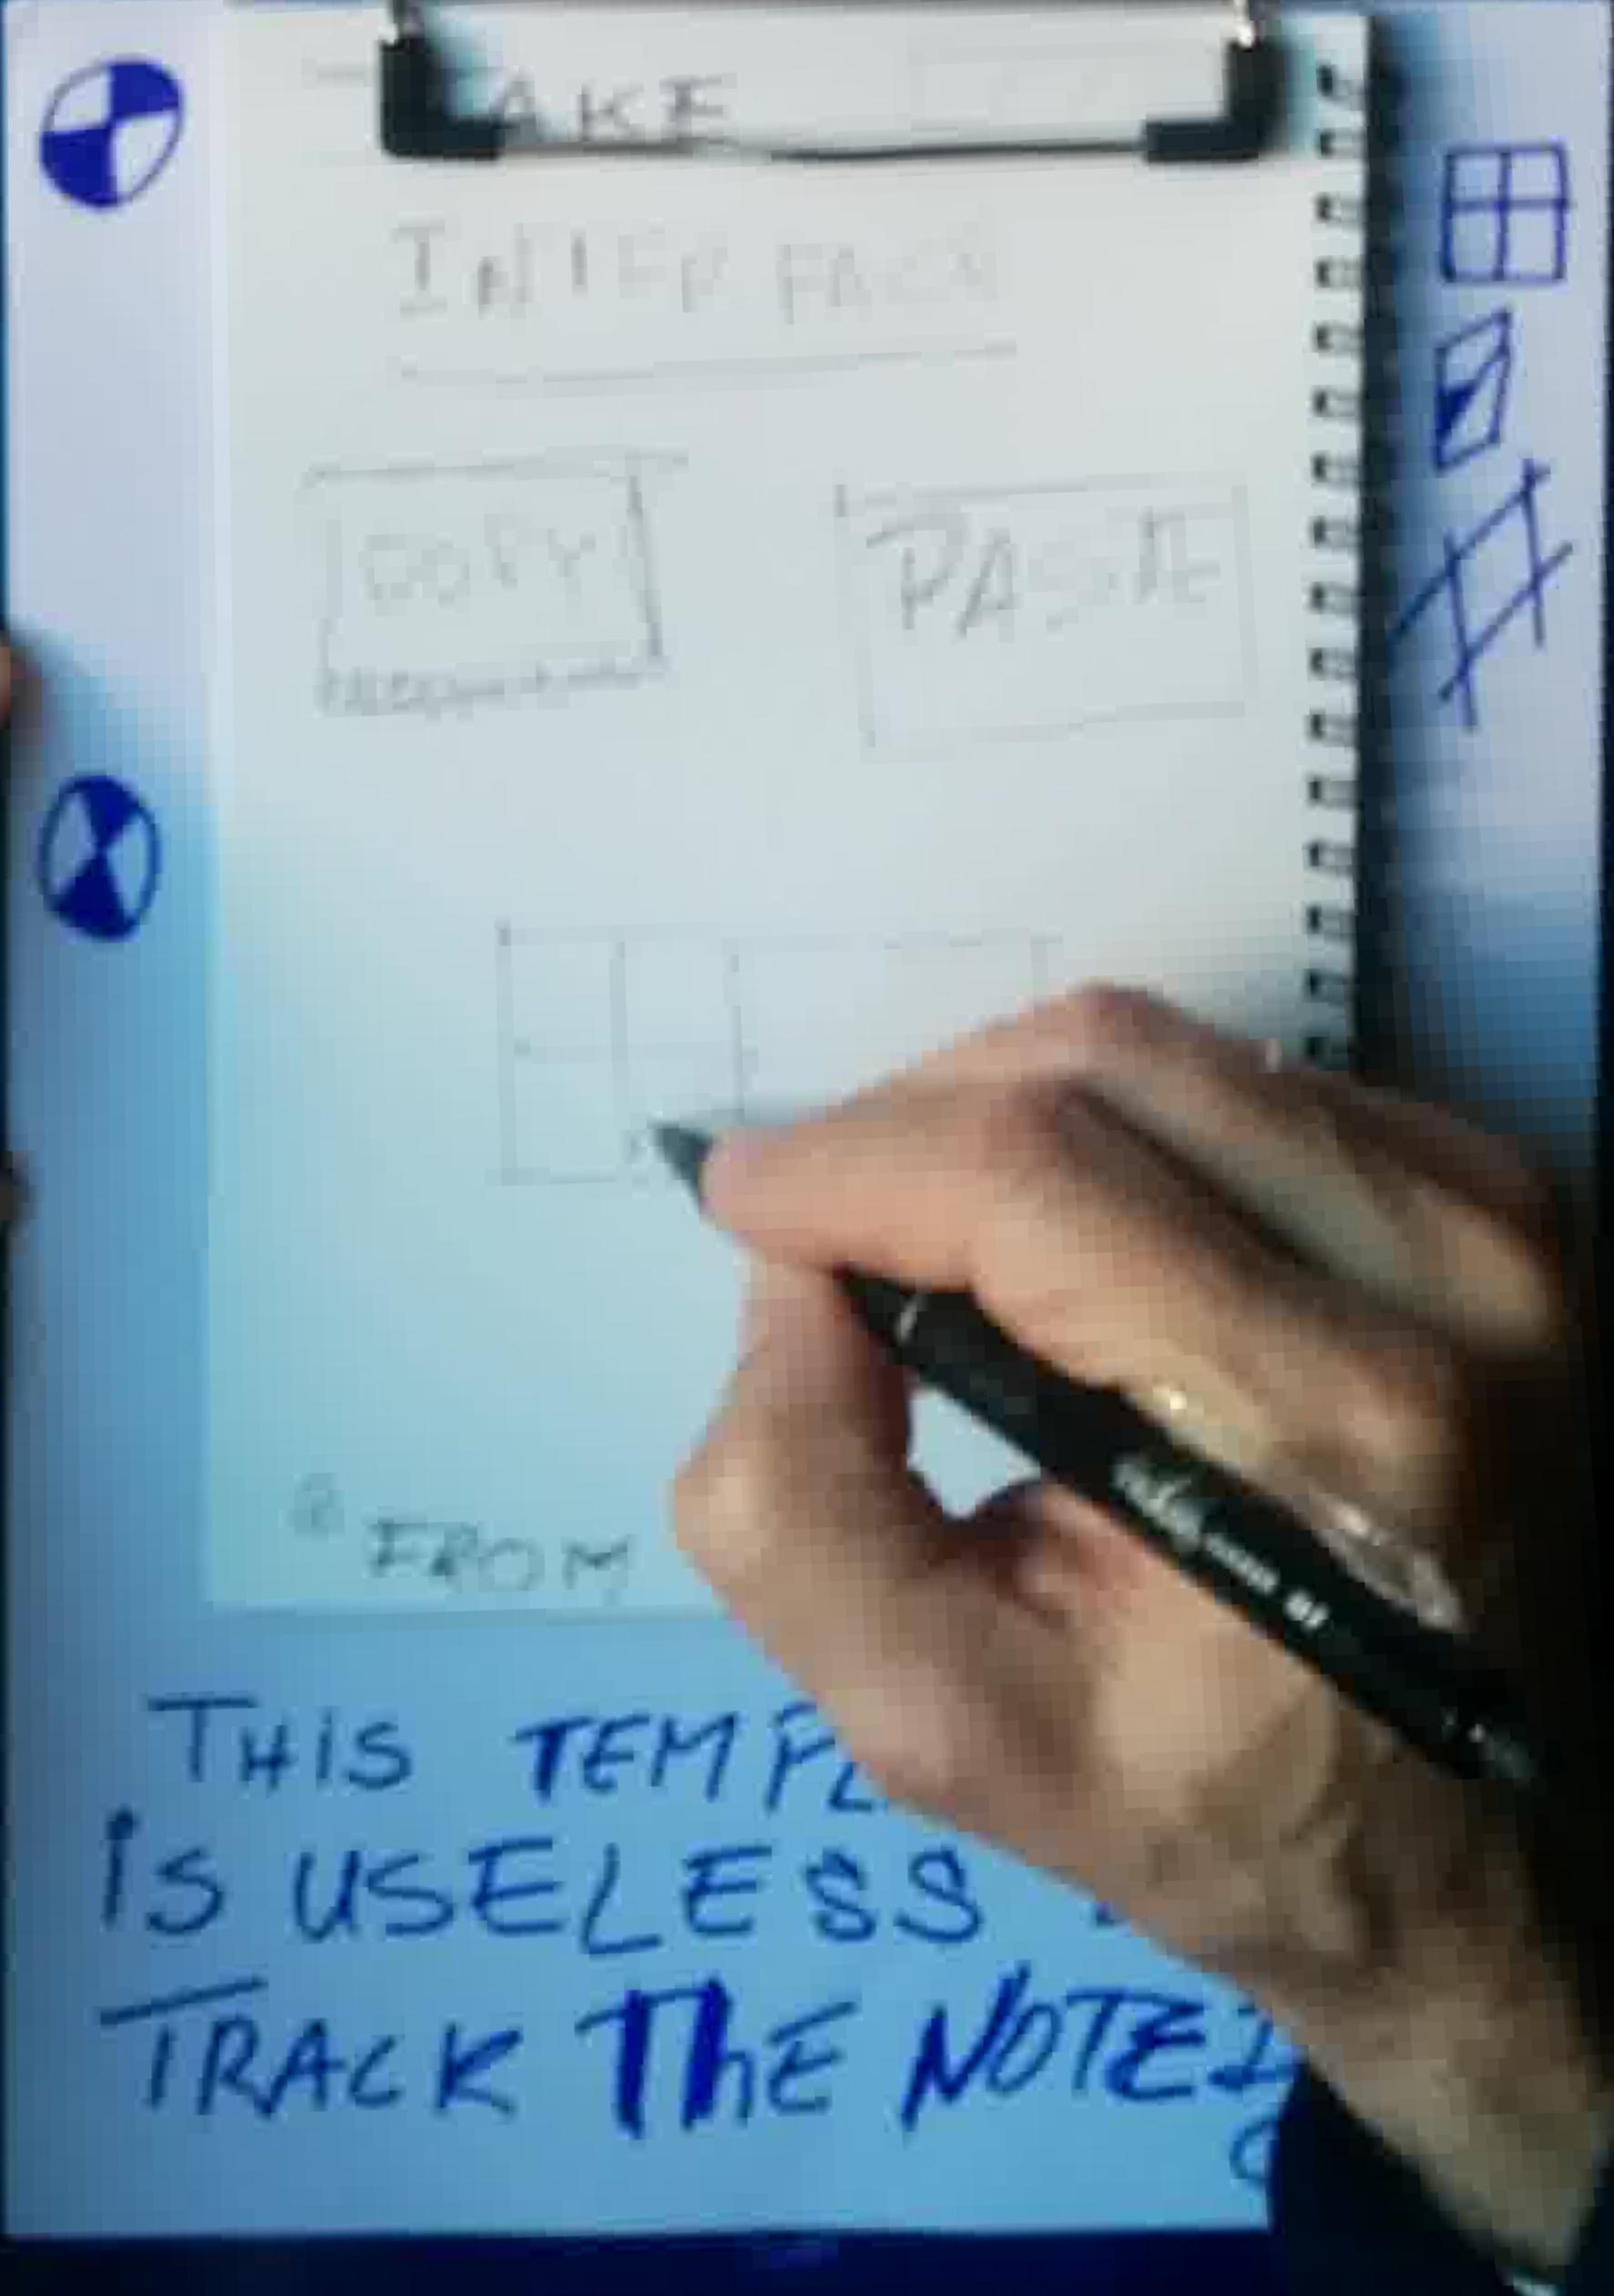 AKE
INTERFACE
COPY PASTE
FROM
THIS TEMPL
IS USELESS
TRACK THE NOTE